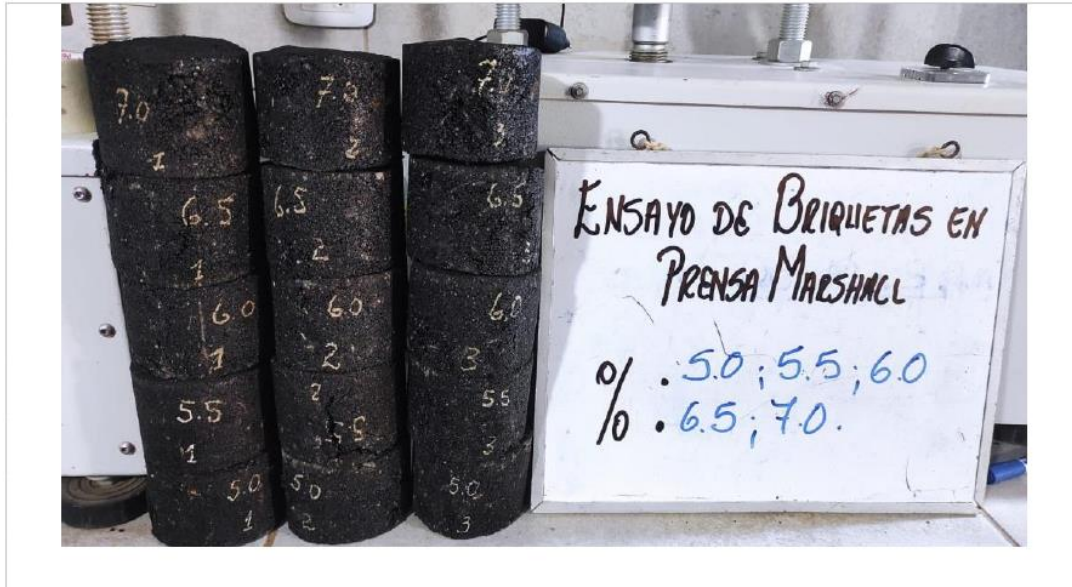 7.0
1
6.5
1
6.0
1
5.5
1
5.0
1
7.0
2
6.5
2
6.0
2
2
5.5
5.0
2
7.0
3
6.5
6.0
3
5.5
3
5.0
3
ENSAYO DE BRIQUETAS EN
PRENSA MARSHALL
% . 5.0 ; 5.5 ; 6.0
% . 6.5 ; 7.0.